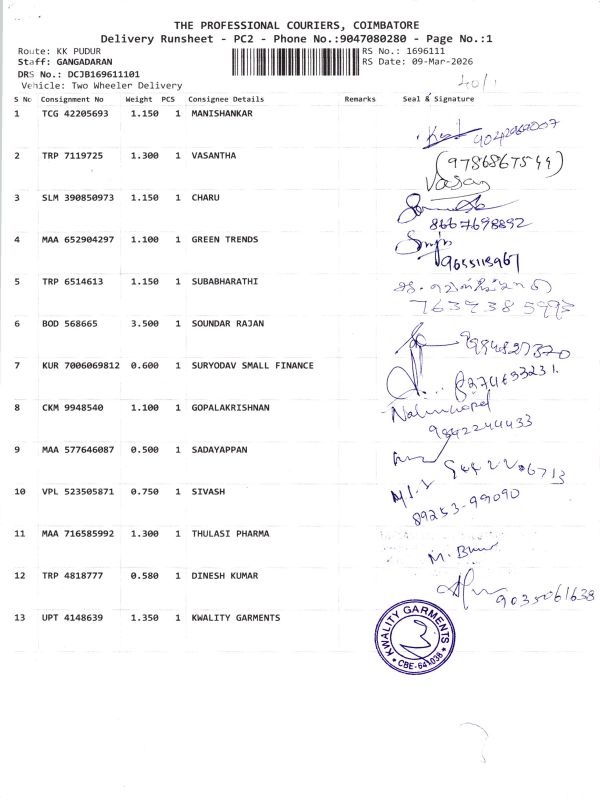 THE PROFESSIONAL COURIERS, COIMBATORE
Delivery Runsheet - PC2 - Phone No.:9047080280 - Page No.:1
Route: KK PUDUR
RS No.: 1696111
Staff: GANGADARAN
RS Date: 09-Mar-2026
DRS No.: DCJB169611101
Vehicle: Two Wheeler Delivery
S No Consignment No Weight PCS Consignee Details Remarks Seal & Signature
1 TCG 42205693 1.150 1 MANISHANKAR
2 TRP 7119725 1.300 1 VASANTHA
(9786867544)
Vasan
3 SLM 390850973 1.150 1 CHARU
8667698892
4 MAA 652904297 1.100 1 GREEN TRENDS
9655115961
5 TRP 6514613 1.150 1 SUBABHARATHI
6 BOD 568665 3.500 1 SOUNDAR RAJAN
9994827370
7 KUR 7006069812 0.600 1 SURYODAV SMALL FINANCE
8274633231.
8 CKM 9948540 1.100 1 GOPALAKRISHNAN
9842244433
9 MAA 577646087 0.500 1 SADAYAPPAN
9442206713
10 VPL 523505871 0.750 1 SIVASH
89253-99090
11 MAA 716585992 1.300 1 THULASI PHARMA
12 TRP 4818777 0.580 1 DINESH KUMAR
9035061638
13 UPT 4148639 1.350 1 KWALITY GARMENTS
KWALITY GARMENTS
* CBE-641 038 *